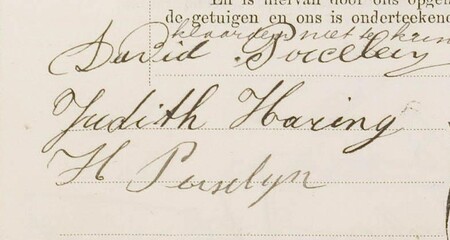 En is hiervan door ons opgem
de getuigen en ons is onderteekend
klaarden niet te kun
David Porcelein
Judith Haring
H Porselyn